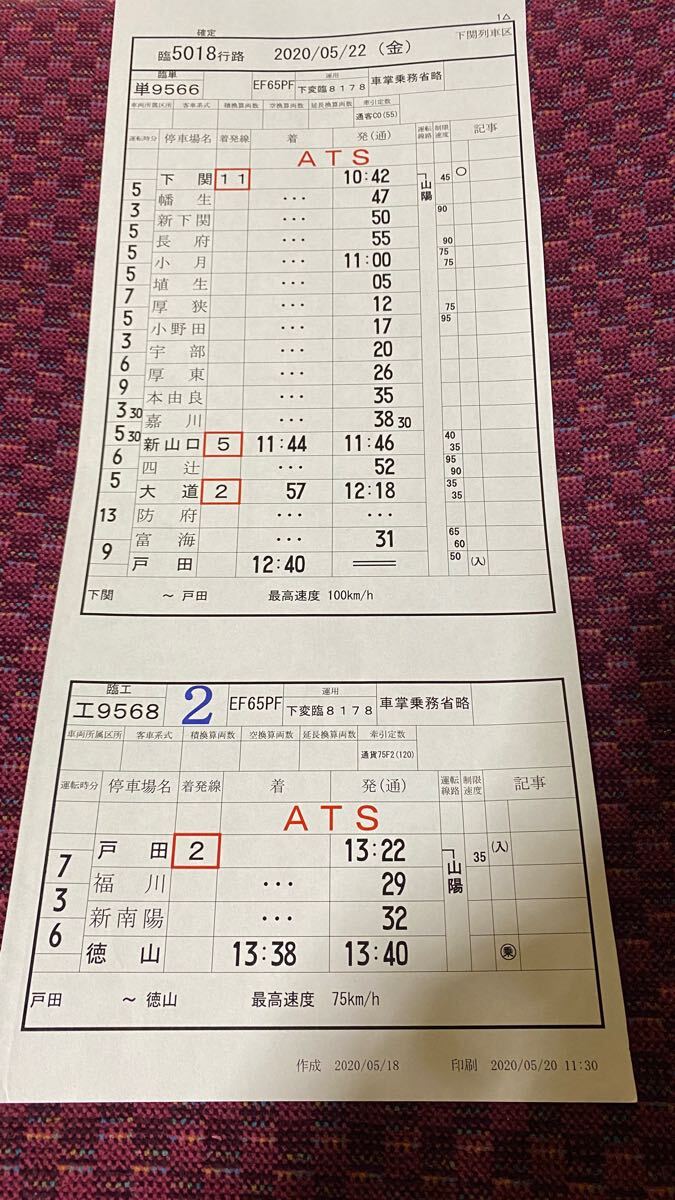 1△
確定
下関列車区
臨5018行路 2020/05/22 (金)
臨単
単9566 EF65PF 運用 下変臨8178 車掌乗務省略
車両所属区所 客車系式 積換算両数 空換算両数 延長換算両数 牽引定数
通客C0(55)
運転時分 停車場名 着発線 着 発(通) 運転線路 制限速度 記事
ATS
下関 11 10:42 山陽 45 ○
5
幡生 ・・・ 47
3
新下関 ・・・ 50 90
5
長府 ・・・ 55 90
5
小月 ・・・ 11:00 75 75
5
埴生 ・・・ 05
7
厚狭 ・・・ 12 75
5
小野田 ・・・ 17 95
3
宇部 ・・・ 20
6
厚東 ・・・ 26
9
本由良 ・・・ 35
3 30
嘉川 ・・・ 38 30
5 30
新山口 5 11:44 11:46 40 35
6
四辻 ・・・ 52 95 90
5
大道 2 57 12:18 35 35
13
防府 ・・・ ・・・
富海 ・・・ 31 65 60
9
戸田 12:40 50 (入)
下関 ～ 戸田 最高速度 100km/h
臨工
工9568 2 EF65PF 運用 下変臨8178 車掌乗務省略
車両所属区所 客車系式 積換算両数 空換算両数 延長換算両数 牽引定数
通貨75F2(120)
運転時分 停車場名 着発線 着 発(通) 運転線路 制限速度 記事
ATS
戸田 2 13:22 山陽 35 (入)
7
福川 ・・・ 29
3
新南陽 ・・・ 32
6
徳山 13:38 13:40 乗
戸田 ～ 徳山 最高速度 75km/h
作成 2020/05/18 印刷 2020/05/20 11:30